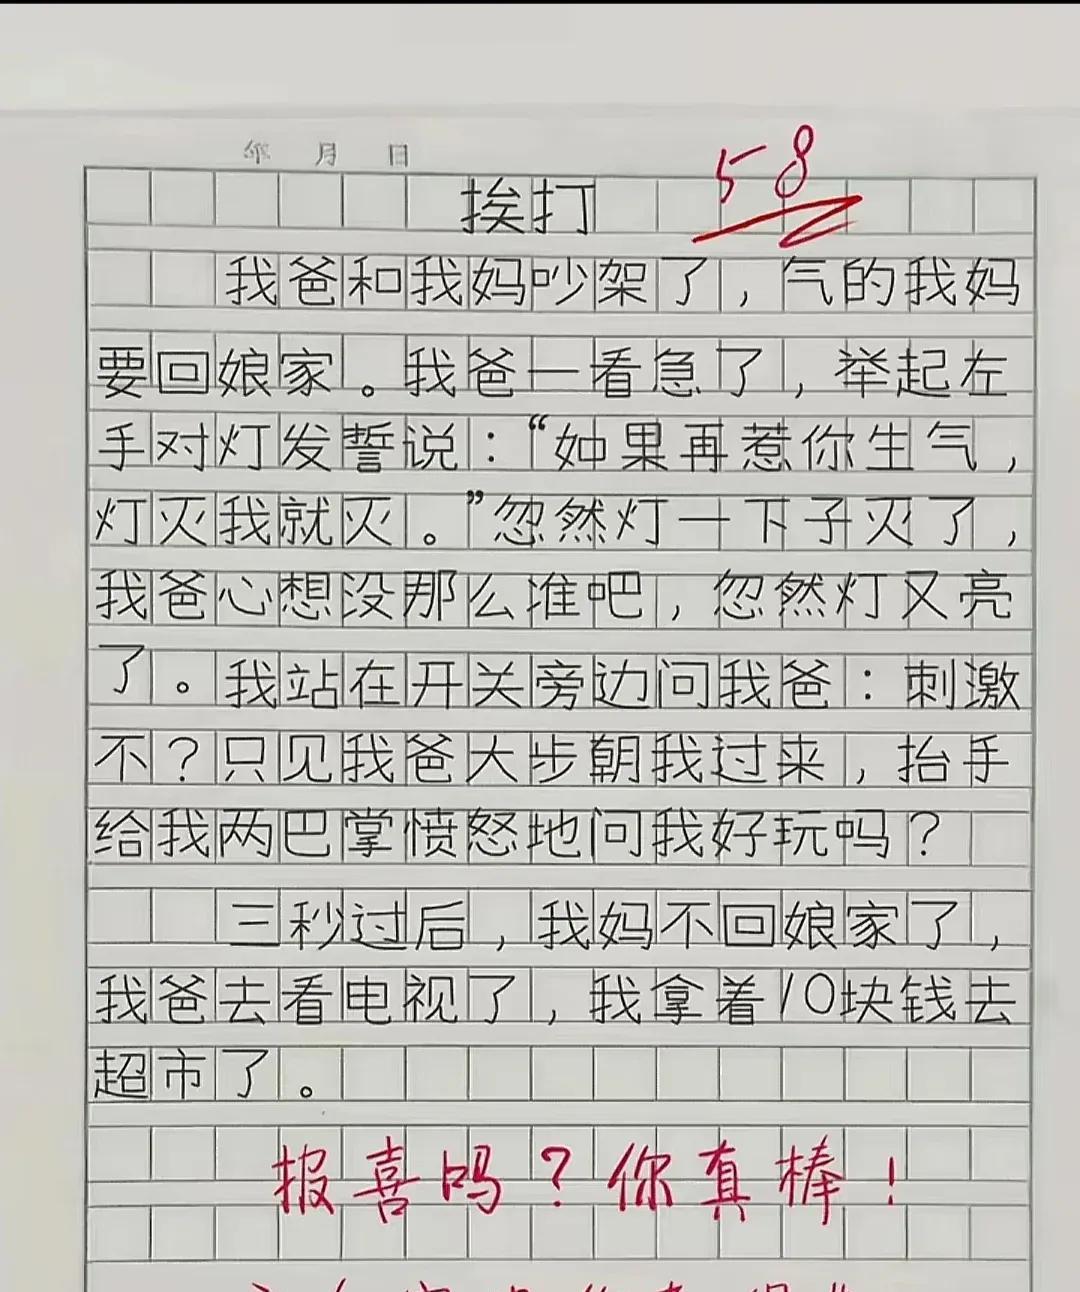 年 月 日
58
挨打
我爸和我妈吵架了，气的我妈
要回娘家。我爸一看急了，举起左
手对灯发誓说：“如果再惹你生气，
灯灭我就灭。”忽然灯一下子灭了，
我爸心想没那么准吧，忽然灯又亮
了。我站在开关旁边问我爸：刺激
不？只见我爸大步朝我过来，抬手
给我两巴掌愤怒地问我好玩吗？
三秒过后，我妈不回娘家了，
我爸去看电视了，我拿着10块钱去
超市了。
报喜吗？你真棒！